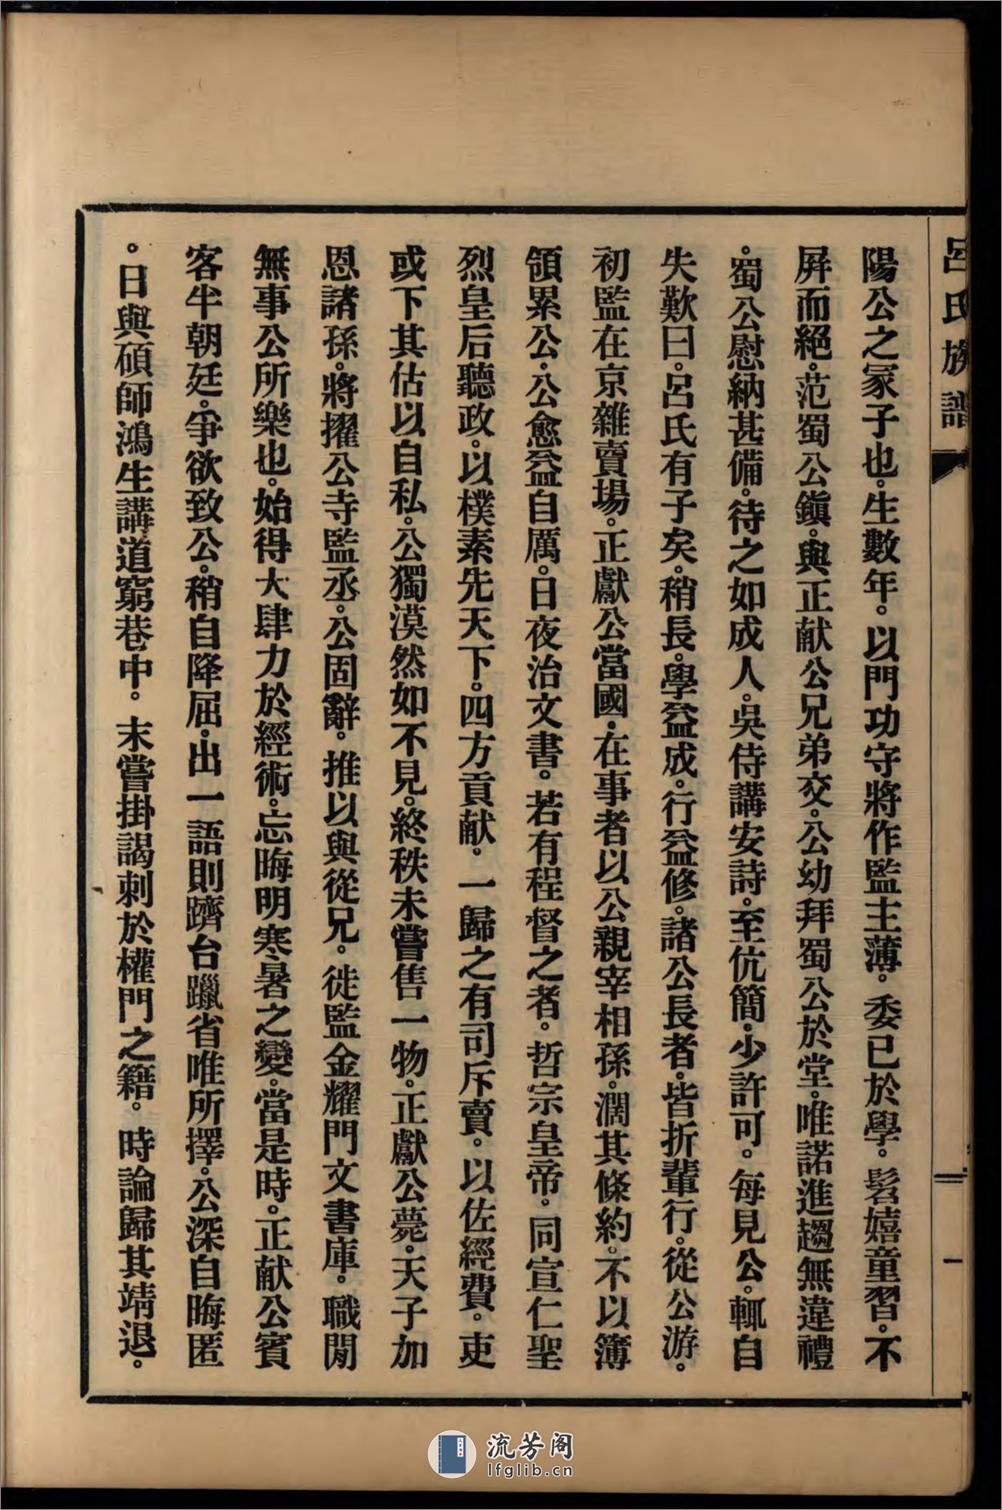 呂氏族譜
一
陽公之冢子也。生數年。以門功守將作監主薄。委己於學。髫嬉童習。不
屛而絕。范蜀公鎭。與正献公兄弟交。公幼拜蜀公於堂。唯諾進趨無違禮
。蜀公慰納甚備。待之如成人。吳侍講安詩。至伉簡。少許可。每見公。輒自
失歎曰。呂氏有子矣。稍長。學益成。行益修。諸公長者。皆折輩行。從公游。
初監在京雜賣場。正獻公當國。在事者以公親宰相孫。濶其條約。不以簿
領累公。公愈益自厲。日夜治文書。若有程督之者。哲宗皇帝。同宣仁聖
烈皇后聽政。以樸素先天下。四方貢献。一歸之有司斥賣。以佐經費。吏
或下其估以自私。公獨漠然如不見。終秩未嘗售一物。正獻公薨。天子加
恩諸孫。將擢公寺監丞。公固辭。推以與從兄。徙監金耀門文書庫。職閒
無事公所樂也。始得大肆力於經術。忘晦明寒暑之變。當是時。正献公賓
客半朝廷。爭欲致公。稍自降屈。出一語則躋台躐省唯所擇。公深自晦匿
。日與碩師鴻生講道窮巷中。末嘗掛謁刺於權門之籍。時論歸其靖退。
流芳阁
lfglib.cn